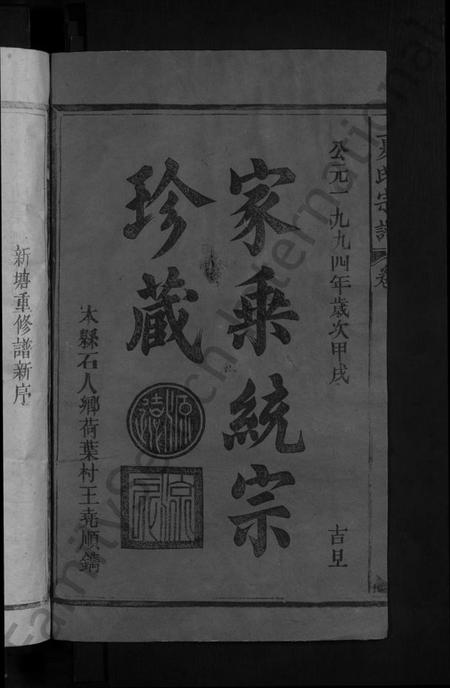 氏宗譜 卷
公元一九九四年歲次甲戌 吉旦
家乘統宗
珍藏
源遠
宗
本縣石人鄉荷葉村王堯順鐫
新塘重修譜新序
FamilySearch International